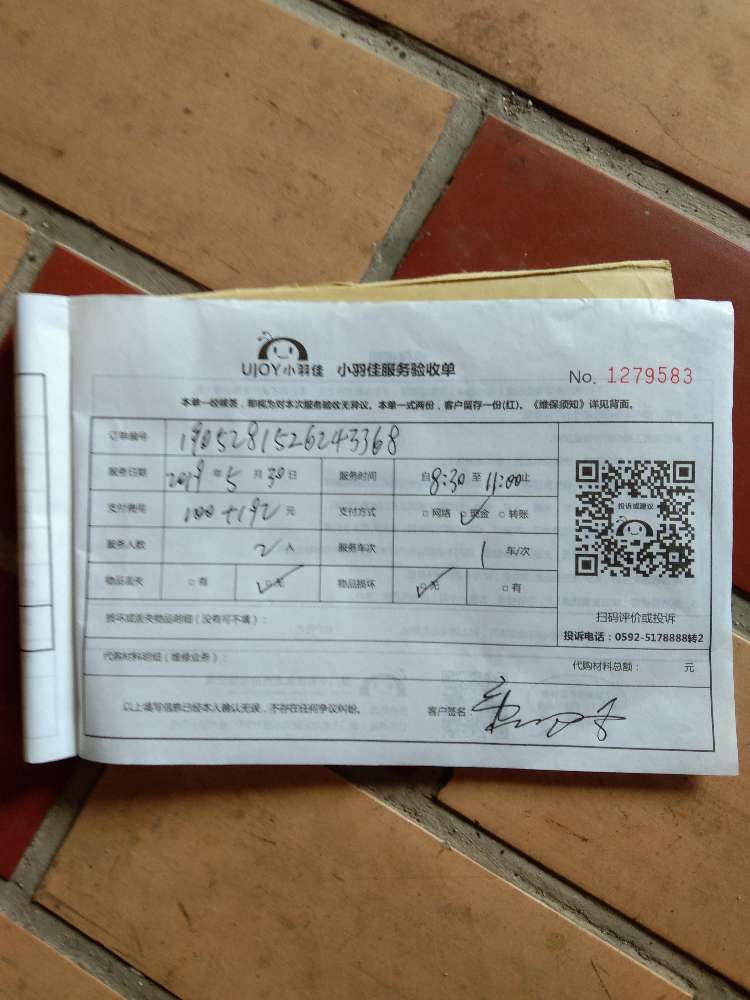 UJOY小羽佳 小羽佳服务验收单
No. 1279583
本单一经签签，即视为对本次服务验收无异议。本单一式两份，客户留存一份(红)。《维保须知》详见背面。
订单编号 1905281526243368
服务日期 2019 年 5 月 30 日 服务时间 自 8:30 至 11:00 止
支付费用 100+192 元 支付方式 □ 网络 □ 现金 □ 转账
服务人数 2 人 服务车次 1 车/次
物品丢失 □ 有 □ 无 物品损坏 □ 无 □ 有
投诉或建议
扫码评价或投诉
投诉电话：0592-5178888转2
损坏或丢失物品明细（没有可不填）：
代购材料明细（维修业务）： 代购材料总额： 元
以上填写信息已经本人确认无误，不存在任何争议纠纷。 客户签名：